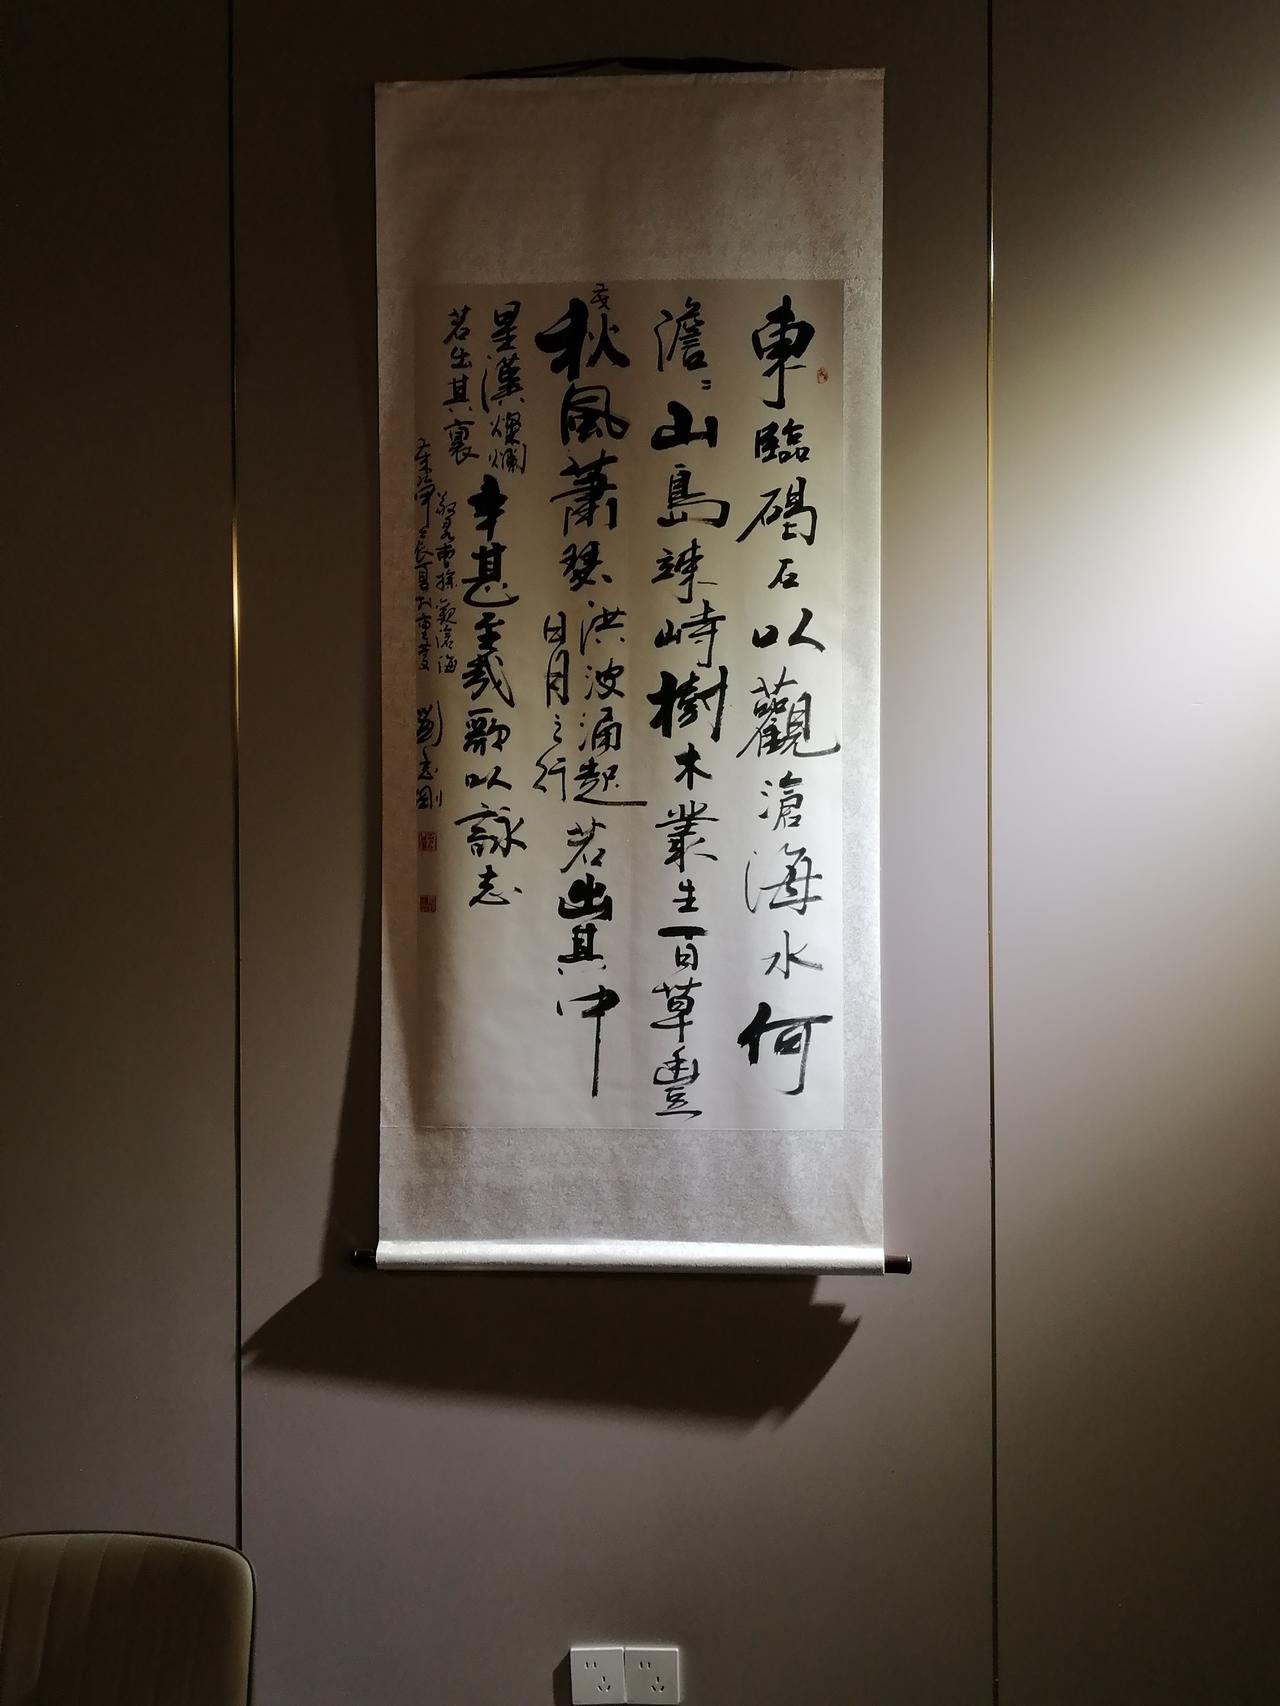 東臨碣石以觀滄海水何
澹〻山島竦峙樹木叢生百草豐
茂秋風蕭瑟洪波涌起日月之行若出其中
星漢燦爛若出其裏幸甚至哉歌以詠志
曹操觀滄海
劉志剛